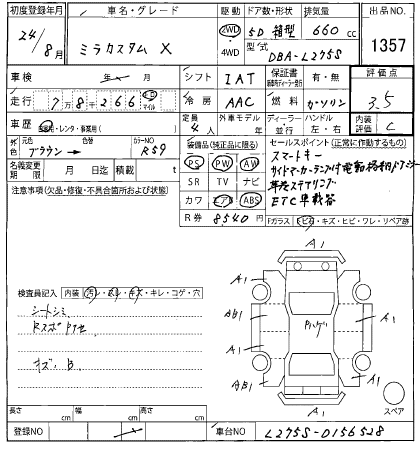 初度登録年月 車名・グレード 駆動 ドア数・形状 排気量 出品NO.
24/8月 ミラカスタム X 2WD 4WD 5D 箱型 660cc 1357
型式 DBA-L275S
車検 年 月 シフト IAT 保証書 有・無 評価点
走行 7万8千266 マイル 冷房 AAC 燃料 ガソリン 3.5
車歴 自家用・レンタ・事業用( ) 定員 4人 外車モデル 年 ディーラー 並行 ハンドル 左・右 内装評価 C
外色 元色 ブラウン → 色替 カラーNO R59
装備品(純正品に限る) セールスポイント(正常に作動するもの)
名義変更期限 月 日迄 積載 t
PS PW AW
SR TV ナビ
カワ エアB ABS
R券 8540円
スマートキー
サイドマーカーランプ付電動格納ドアミラー
革巻ステアリング
ETC車載器
注意事項(欠品・修復・不具合箇所および状態)
Fガラス トビ石・キズ・ヒビ・ワレ・リペア跡
検査員記入 内装 汚レ・スレ・キズ・キレ・コゲ・穴
シートシミ
キズ、B
A1
A1 A1
AB1 A1
A1
AB1 A1
A1
スペア
長さ cm 幅 cm 高さ cm
登録NO 車台NO L275S-0156528